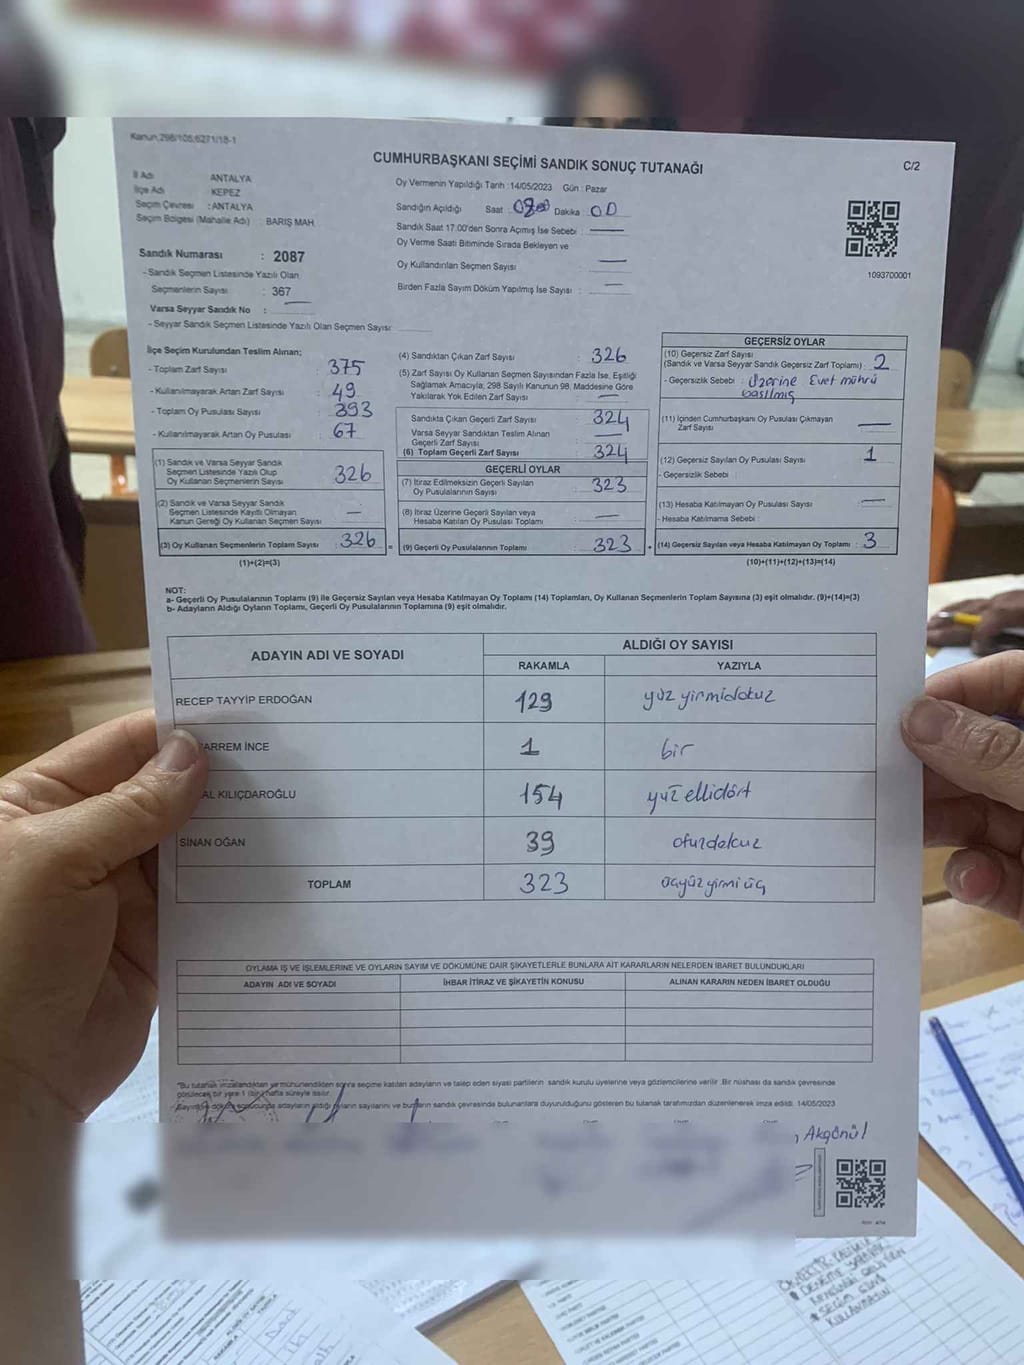 Kanun:298/105;6271/18-1
CUMHURBAŞKANI SEÇİMİ SANDIK SONUÇ TUTANAĞI
C/2
İl Adı ANTALYA
İlçe Adı KEPEZ
Seçim Çevresi : ANTALYA
Seçim Bölgesi (Mahalle Adı) : BARIŞ MAH
Sandık Numarası : 2087
- Sandık Seçmen Listesinde Yazılı Olan
Seçmenlerin Sayısı : 367
Varsa Seyyar Sandık No :
- Seyyar Sandık Seçmen Listesinde Yazılı Olan Seçmen Sayısı
Oy Vermenin Yapıldığı Tarih :14/05/2023 Gün : Pazar
Sandığın Açıldığı Saat : 08 00 Dakika : 00
Sandık Saat 17.00'den Sonra Açmış İse Sebebi : —
Oy Verme Saati Bitiminde Sırada Bekleyen ve
Oy Kullandırılan Seçmen Sayısı : —
Birden Fazla Sayım Döküm Yapılmış İse Sayısı : —
1093700001
İlçe Seçim Kurulundan Teslim Alınan;
- Toplam Zarf Sayısı : 375
- Kullanılmayarak Artan Zarf Sayısı : 49
- Toplam Oy Pusulası Sayısı : 393
- Kullanılmayarak Artan Oy Pusulası : 67
(1) Sandık ve Varsa Seyyar Sandık
Seçmen Listesinde Yazılı Olup
Oy Kullanan Seçmenlerin Sayısı : 326
(2) Sandık ve Varsa Seyyar Sandık
Seçmen Listesinde Kayıtlı Olmayan
Kanun Gereği Oy Kullanan Seçmen Sayısı : —
(3) Oy Kullanan Seçmenlerin Toplam Sayısı : 326
(1)+(2)=(3)
(4) Sandıktan Çıkan Zarf Sayısı : 326
(5) Zarf Sayısı Oy Kullanan Seçmen Sayısından Fazla İse, Eşitliği
Sağlamak Amacıyla; 298 Sayılı Kanunun 98. Maddesine Göre
Yakılarak Yok Edilen Zarf Sayısı : —
Sandıkta Çıkan Geçerli Zarf Sayısı : 324
Varsa Seyyar Sandıktan Teslim Alınan
Geçerli Zarf Sayısı : —
(6) Toplam Geçerli Zarf Sayısı : 324
GEÇERLİ OYLAR
(7) İtiraz Edilmeksizin Geçerli Sayılan
Oy Pusulalarının Sayısı : 323
(8) İtiraz Üzerine Geçerli Sayılan veya
Hesaba Katılan Oy Pusulası Toplamı : —
= (9) Geçerli Oy Pusulalarının Toplamı : 323 +
GEÇERSİZ OYLAR
(10) Geçersiz Zarf Sayısı
(Sandık ve Varsa Seyyar Sandık Geçersiz Zarf Toplamı) : 2
- Geçersizlik Sebebi : Üzerine Evet mührü
basılmış
(11) İçinden Cumhurbaşkanı Oy Pusulası Çıkmayan
Zarf Sayısı : —
(12) Geçersiz Sayılan Oy Pusulası Sayısı : 1
- Geçersizlik Sebebi :
(13) Hesaba Katılmayan Oy Pusulası Sayısı : —
- Hesaba Katılmama Sebebi :
(14) Geçersiz Sayılan veya Hesaba Katılmayan Oy Toplamı : 3
(10)+(11)+(12)+(13)=(14)
NOT:
a- Geçerli Oy Pusulalarının Toplamı (9) ile Geçersiz Sayılan veya Hesaba Katılmayan Oy Toplamı (14) Toplamları, Oy Kullanan Seçmenlerin Toplam Sayısına (3) eşit olmalıdır. (9)+(14)=(3)
b- Adayların Aldığı Oyların Toplamı, Geçerli Oy Pusulalarının Toplamına (9) eşit olmalıdır.
ADAYIN ADI VE SOYADI ALDIĞI OY SAYISI
RAKAMLA YAZIYLA
RECEP TAYYİP ERDOĞAN 129 yüz yirmidokuz
ARREM İNCE 1 bir
AL KILIÇDAROĞLU 154 yüz ellidört
SİNAN OĞAN 39 otuzdokuz
TOPLAM 323 üçyüz yirmi üç
OYLAMA İŞ VE İŞLEMLERİNE VE OYLARIN SAYIM VE DÖKÜMÜNE DAİR ŞİKAYETLERLE BUNLARA AİT KARARLARIN NELERDEN İBARET BULUNDUKLARI
ADAYIN ADI VE SOYADI İHBAR İTİRAZ VE ŞİKAYETİN KONUSU ALINAN KARARIN NEDEN İBARET OLDUĞU
"Bu tutanak imzalandıktan ve mühürlendikten sonra seçime katılan adayların ve talep eden siyasi partilerin sandık kurulu üyelerine veya gözlemcilerine verilir. Bir nüshası da sandık çevresinde
görülecek bir yere 1 (bir) hafta süreyle asılır.
Sayım ve döküm sonucunda adayların aldığı oyların sayılarını ve bunların sandık çevresinde bulunanlara duyurulduğunu gösteren bu tutanak tarafımızdan düzenlenerek imza edildi. 14/05/2023
Akgönül